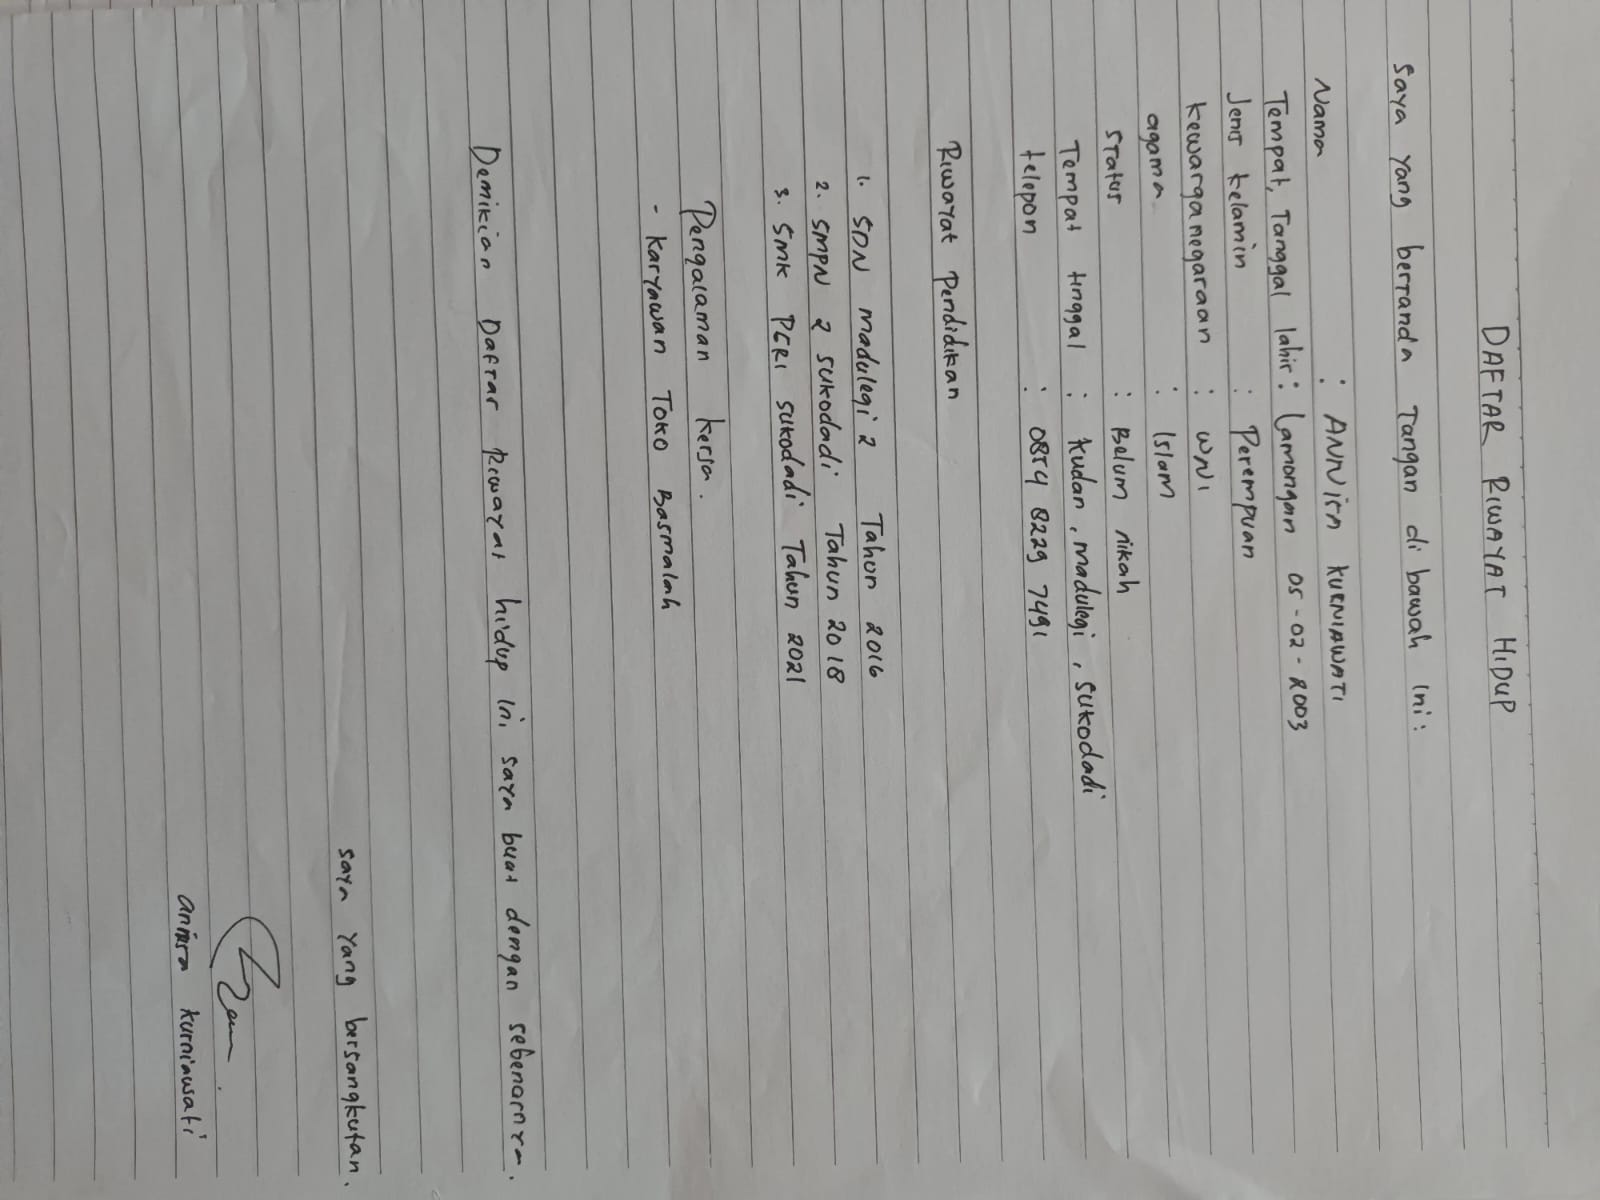 DAFTAR RIWAYAT HIDUP
Saya yang bertanda Tangan di bawah ini:
Nama : ANNisa KURNIAWATI
Tempat, Tanggal lahir : Lamongan 05-02-2003
Jenis kelamin : Perempuan
kewarganegaraan : WNI
agama : Islam
Status : Belum nikah
Tempat tinggal : kudan, madulegi, sukodadi
telepon : 0854 8229 7491
Riwayat Pendidikan
1. SDN madulegi 2 Tahun 2016
2. SMPN 2 sukodadi Tahun 2018
3. SMK PGRI sukodadi Tahun 2021
Pengalaman kerja.
- Karyawan TOKO Basmalah
Demikian Daftar Riwayat hidup ini saya buat dengan sebenarnya.
saya yang bersangkutan.
annisa kurniawati